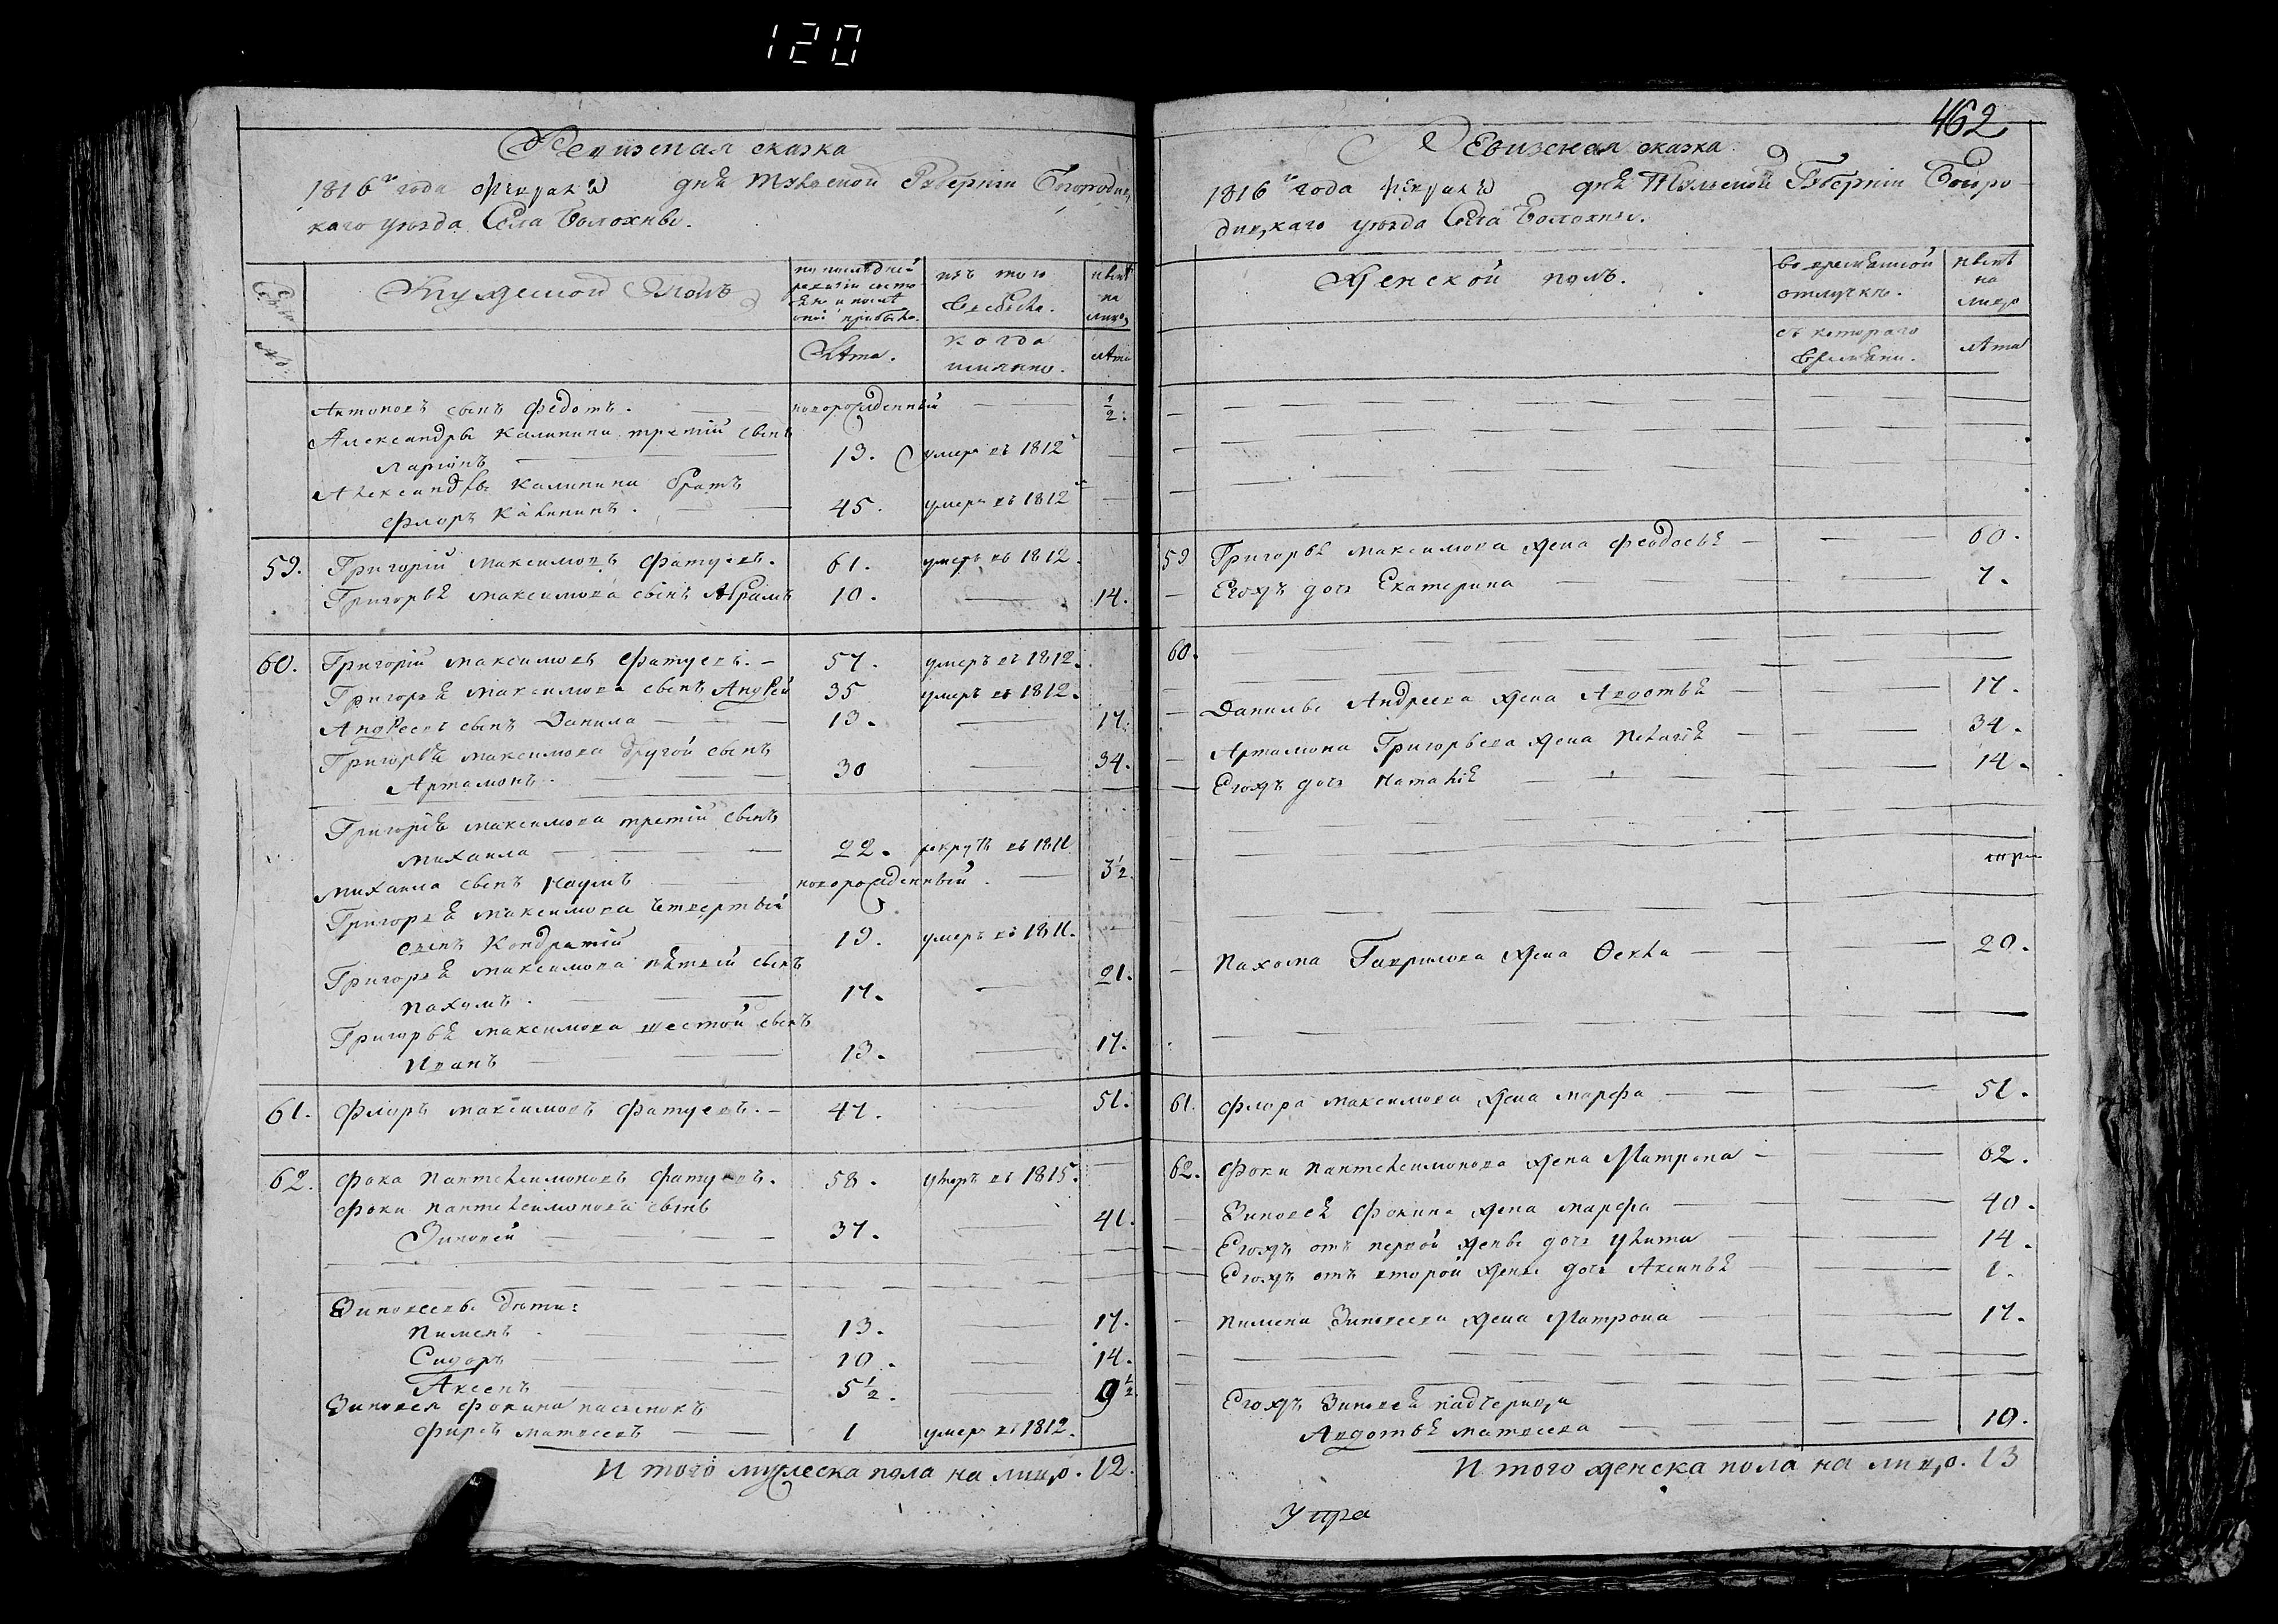 120
Ревизская сказка
1816го года февраля дня Тульской Губернии Богородиц,
каго уезда Села Болохны.
Семьи
Мужеской Полъ
по последней
ревизии состо
яло и после
оной прибыло.
изъ того
выбыло.
ныне
на
лицо,
№.
Лета.
когда
именно.
лета
Антоновъ сынъ Федотъ. новорожденный 1/2.
Александры Калинина третий сынъ
Ларионъ 13. умеръ въ 1812
Александры Калинина братъ
Флоръ Калининъ. 45. умеръ въ 1812
59. Григорий Максимовъ Фатуевъ. 61. умеръ въ 1812.
Григорья Максимова сынъ Абрамъ 10. 14.
60. Григорий Максимовъ Фатуевъ. 57. умеръ въ 1812.
Григорья Максимова сынъ Андрей 35 умеръ въ 1812.
Андреевъ сынъ Данила 13. 17.
Григорья Максимова другой сынъ
Артамонъ. 30 34.
Григорья Максимова третий сынъ
Михаила 22. рекрутъ въ 1811
Михаила сынъ Наумъ новорожденный. 3 1/2.
Григорья Максимова четвертый
сынъ Кондратий 19. умеръ въ 1811.
Григорья Максимова пятый сынъ
Пахомъ. 17. 21.
Григорья Максимова шестой сынъ
Иванъ 13. 17.
61. Флоръ Максимовъ Фатуевъ. 47. 51.
62. Фока Пантелеимоновъ Фатуевъ. 58. умеръ въ 1815.
Фоки Пантелеимонова сынъ
Зиновей 37. 41.
Зиновеевы дети:
Пименъ 13. 17.
Сидоръ 10. 14.
Аксенъ 5 1/2. 9 1/2
Зиновея Фокина пасынокъ
Фирсъ Матвеевъ 1 умеръ въ 1812.
И того мужеска пола на лицо. 12.
462
Ревизская сказка
1816го года февраля дня Тульской Губернии Богоро
диц,каго уезда Села Болохны.
Женской полъ.
Во временной
отлучке.
ныне
на
лицо
съ котораго
времяни.
лета
59 Григорья Максимова жена Феодосья 60.
Ево жъ дочь Екатерина 7.
60.
Данилы Андреева жена Авдотья 17.
Артамона Григорьева жена Пелагия 34.
Ево жъ дочь Наталия 14.
Пахома Гаврилова жена Фекла 20.
61. Флора Максимова жена Марфа 51.
62. Фоки Пантелеимонова жена Матрона 62.
Зиновея Фокина жена Марфа 40.
Ево жъ отъ первой жены дочь Улита 14.
Ево жъ отъ второй жены дочь Аксинья 1.
Пимена Зиновеева жена Матрона 17.
Ево жъ Зиновея падчерица
Авдотья Матвеева 10.
И того женска пола на лицо. 13